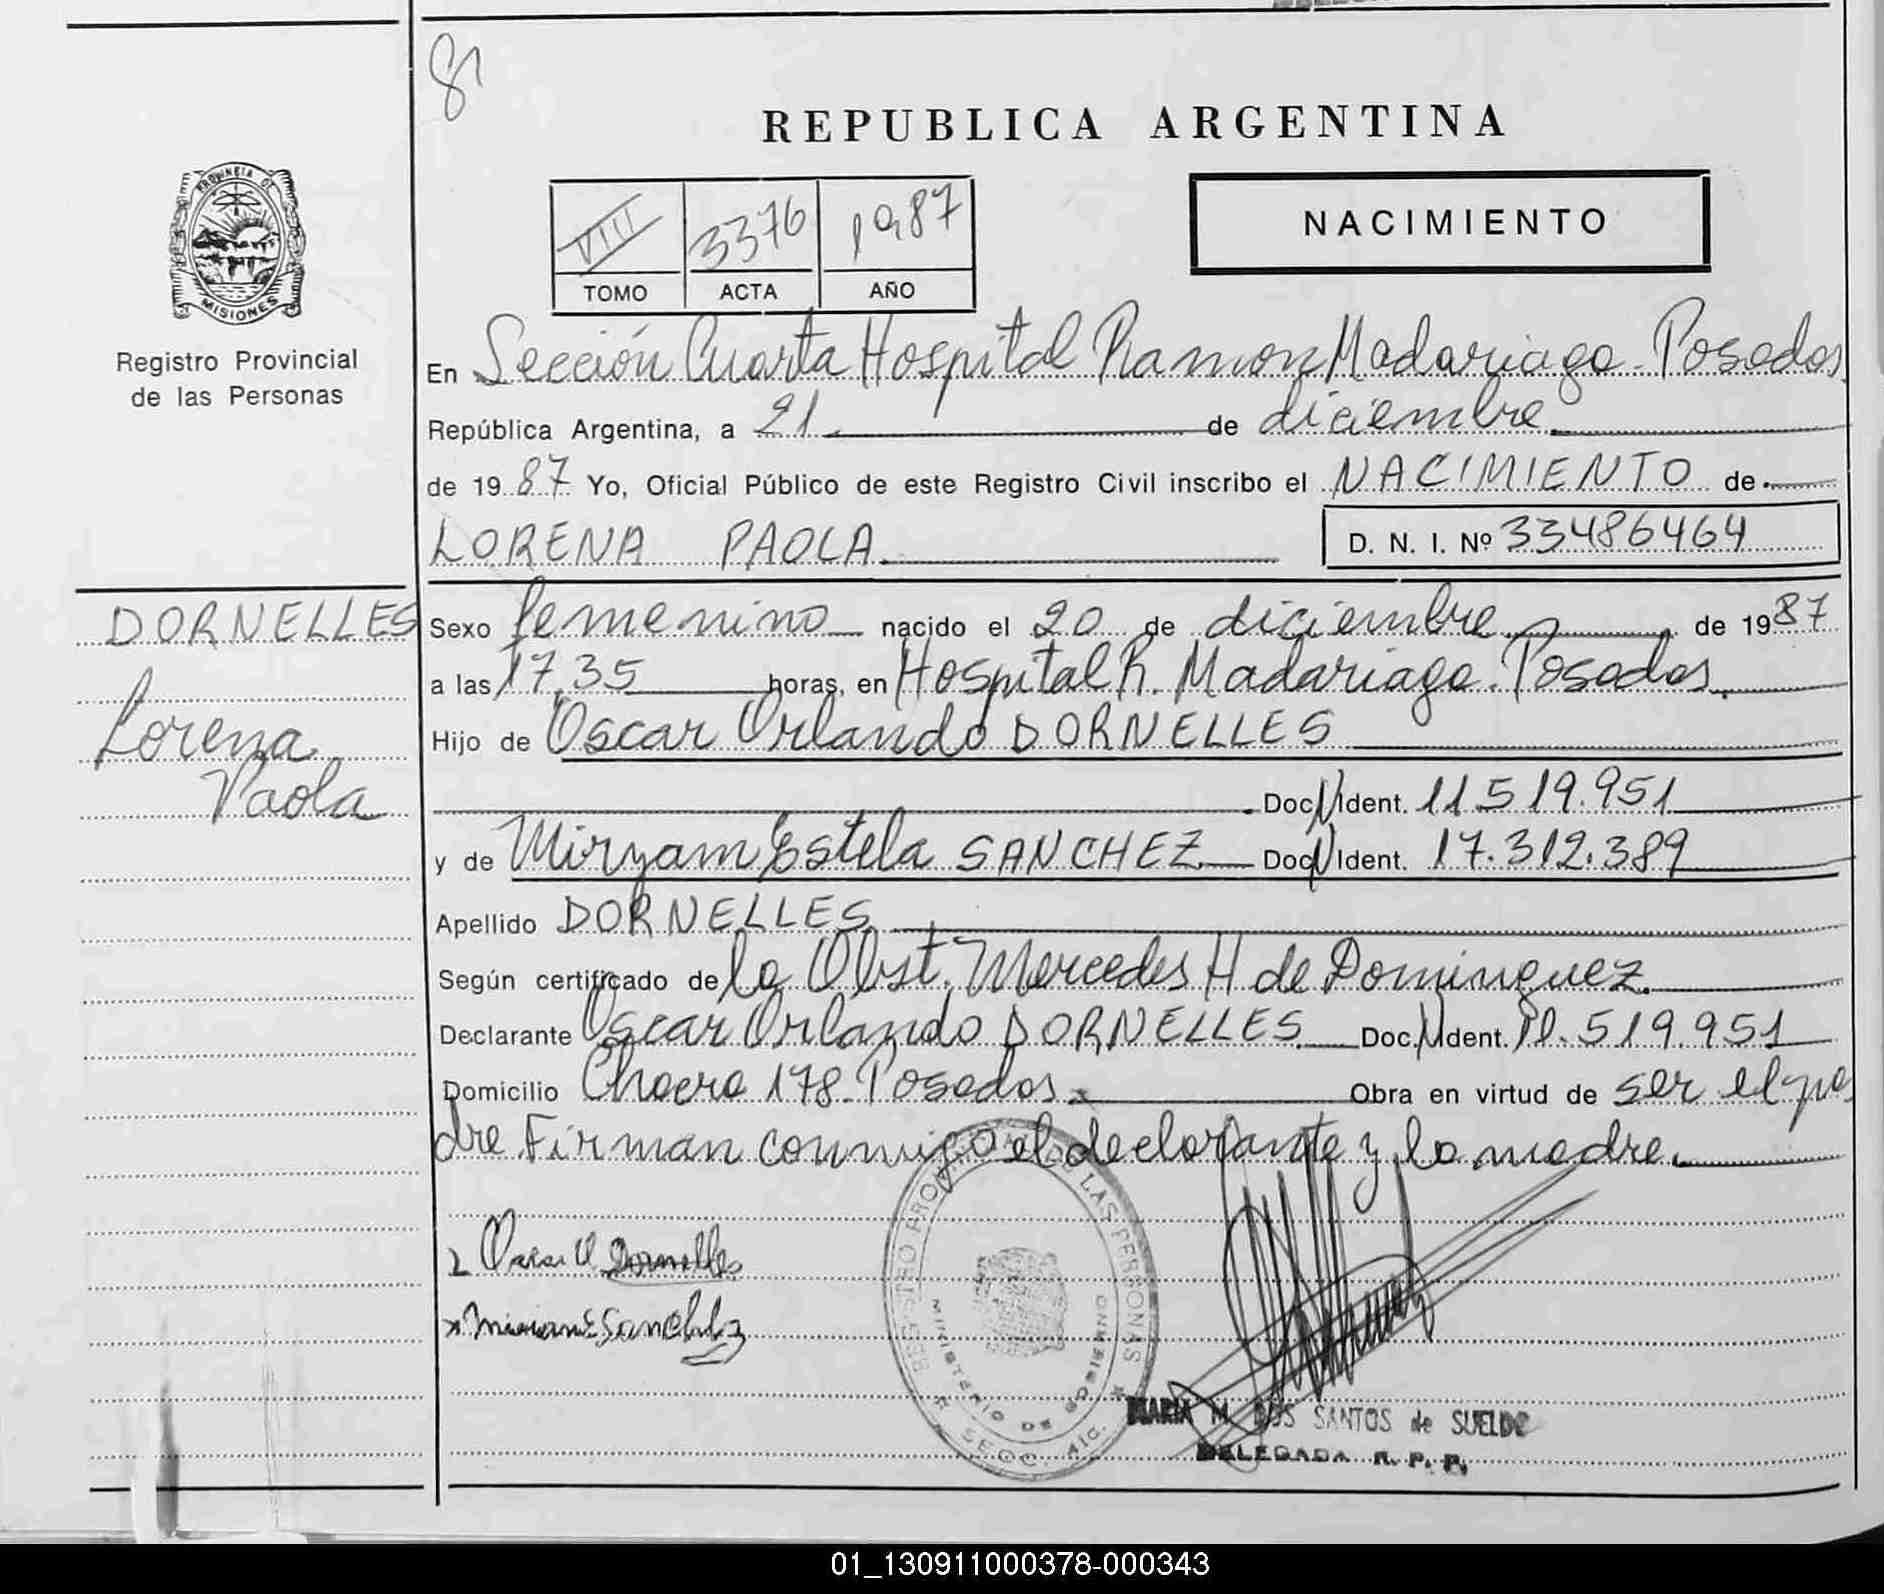 81
REPUBLICA ARGENTINA
PROVINCIA DE
MISIONES
Registro Provincial
de las Personas
VIII 3376 1987
TOMO ACTA AÑO
NACIMIENTO
En Sección Cuarta Hospital Ramon Madariaga - Posadas
República Argentina, a 21 de diciembre
de 1987 Yo, Oficial Público de este Registro Civil inscribo el NACIMIENTO de
LORENA PAOLA D. N. I. Nº 33486464
DORNELLES
Lorena
Paola
Sexo femenino nacido el 20 de diciembre de 1987
a las 17,35 horas, en Hospital R. Madariaga. Posadas.
Hijo de Oscar Orlando DORNELLES
Doc. N Ident. 11.519.951
y de Miryam Estela SANCHEZ Doc. N Ident. 17.312.389
Apellido DORNELLES
Según certificado de la Obst. Mercedes H de Dominguez.
Declarante Oscar Orlando DORNELLES Doc. N Ident. 11.519.951
Domicilio Chacra 178. Posadas. Obra en virtud de ser el pa
dre. Firman conmigo el declarante y la madre.
Oscar O Dornelles
REGISTRO PROVINCIAL DE LAS PERSONAS
MINISTERIO DE GOBIERNO
MARIA M. DOS SANTOS de SUELDO
DELEGADA R. P. P.
01_130911000378-000343